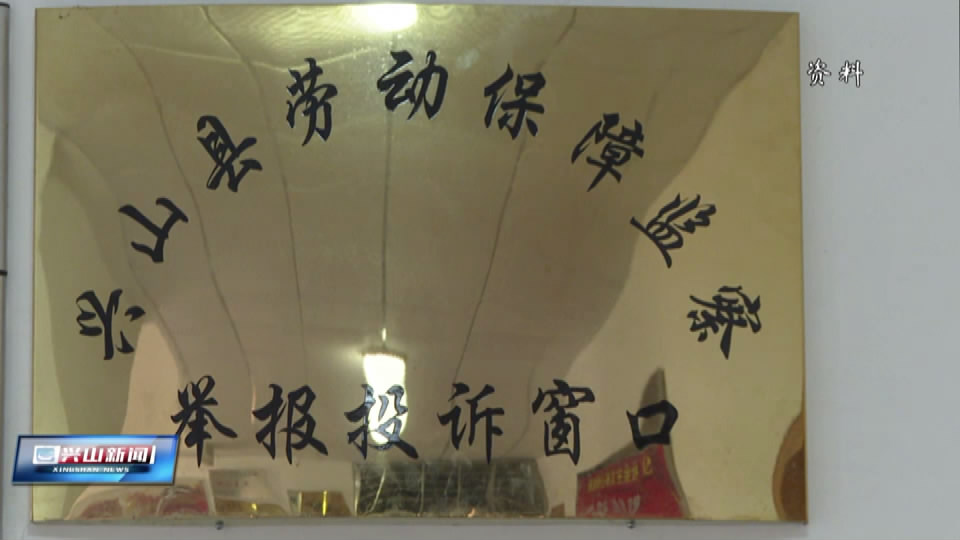 省劳动保障监察
举报投诉窗口
资料
兴山新闻
XINGSHAN NEWS